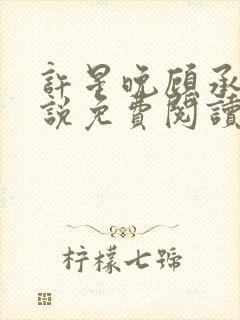 許星晚顧承
說免費閱讀
柠檬七號